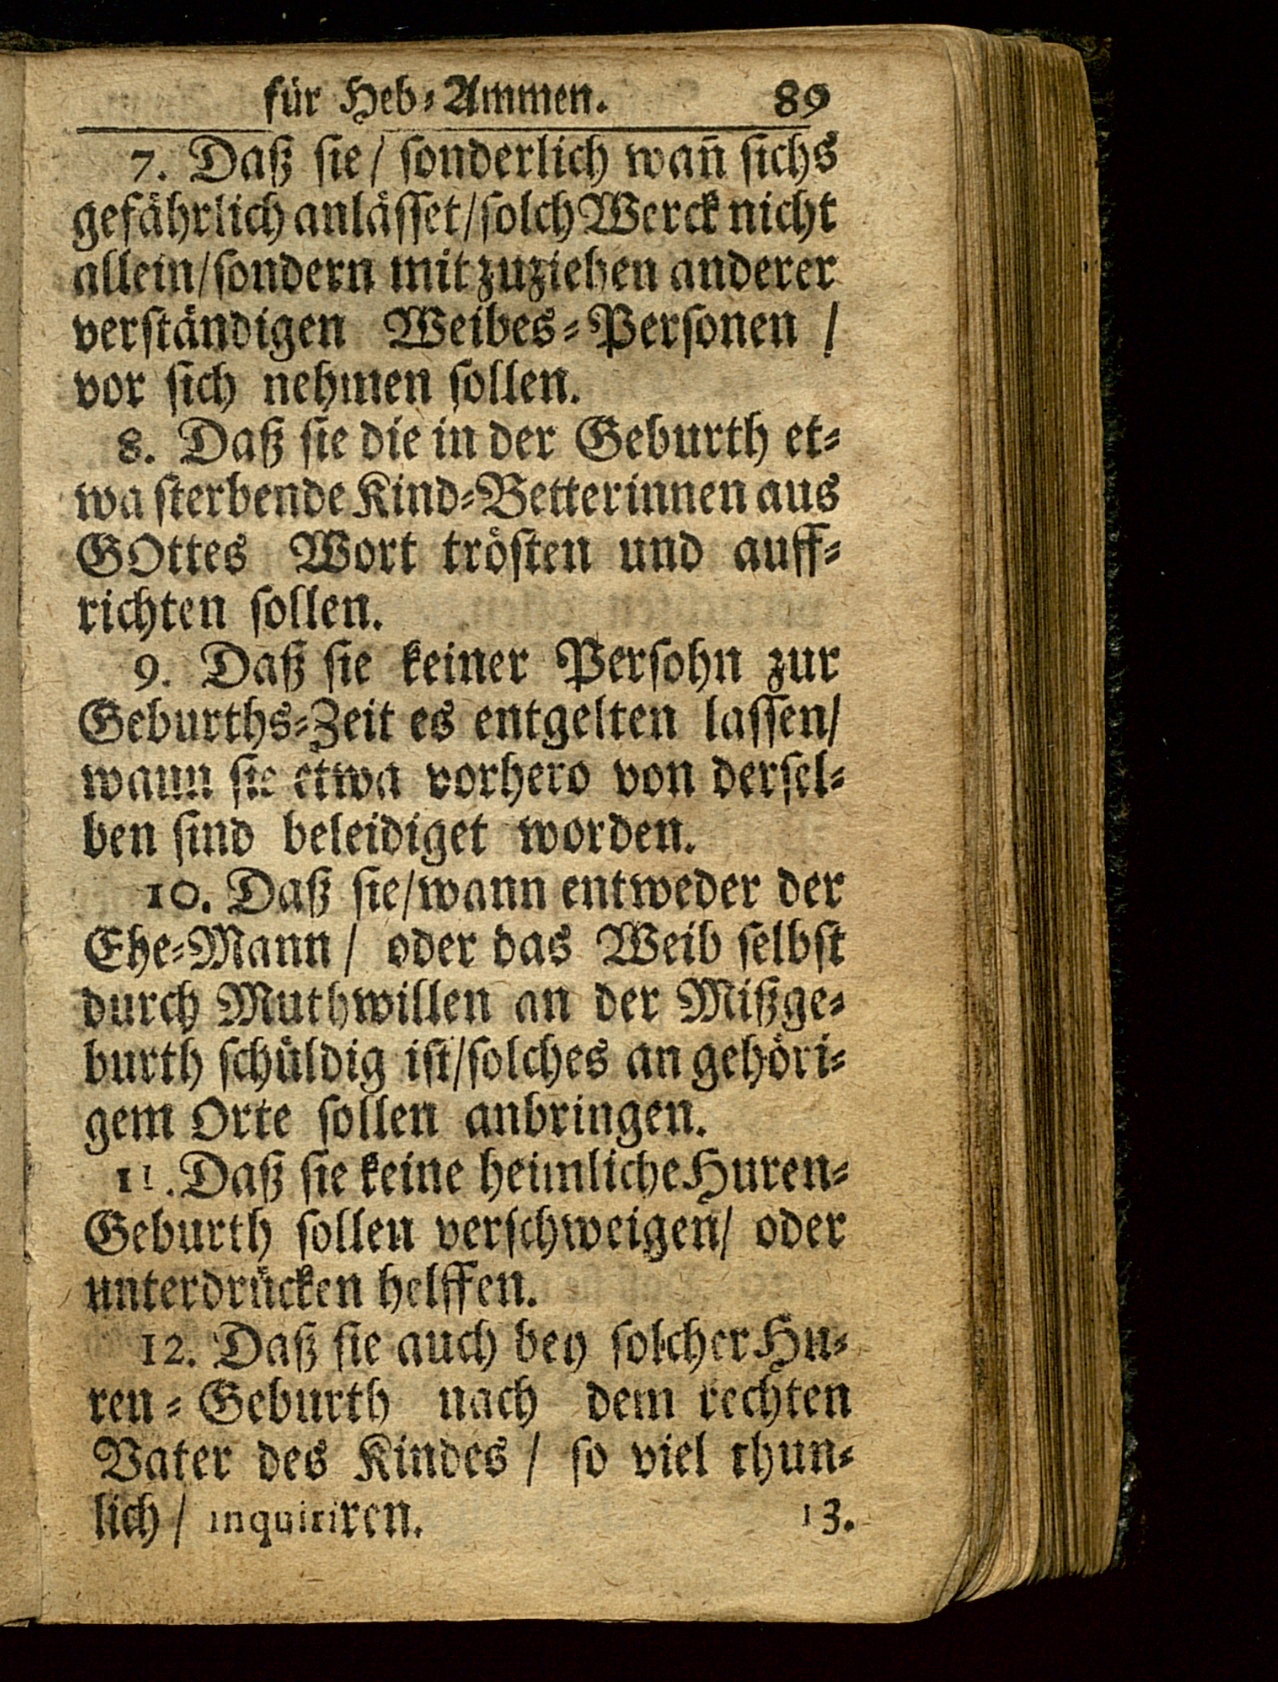 für Heb⸗Ammen. 89
7. Daß ſie / ſonderlich wañ ſichs
gefährlich anläſſet / ſolch Werck nicht
allein / ſondern mit zuziehen anderer
verſtändigen Weibes⸗Perſonen /
vor ſich nehmen ſollen.
8. Daß ſie die in der Geburth et⸗
wa ſterbende Kind⸗Betterinnen aus
GOttes Wort tröſten und auff⸗
richten ſollen.
9. Daß ſie keiner Perſohn zur
Geburths⸗Zeit es entgelten laſſen /
wann ſie etwa vorhero von derſel⸗
ben ſind beleidiget worden.
10. Daß ſie / wann entweder der
Ehe⸗Mann / oder das Weib ſelbſt
durch Muthwillen an der Mißge⸗
burth ſchüldig iſt / ſolches an gehöri⸗
gem Orte ſollen anbringen.
11. Daß ſie keine heimliche Huren⸗
Geburth ſollen verſchweigen / oder
unterdrücken helffen.
12. Daß ſie auch bey ſolcher Hu⸗
ren⸗Geburth nach dem rechten
Vater des Kindes / ſo viel thun⸗
lich / inquiriren. 13.